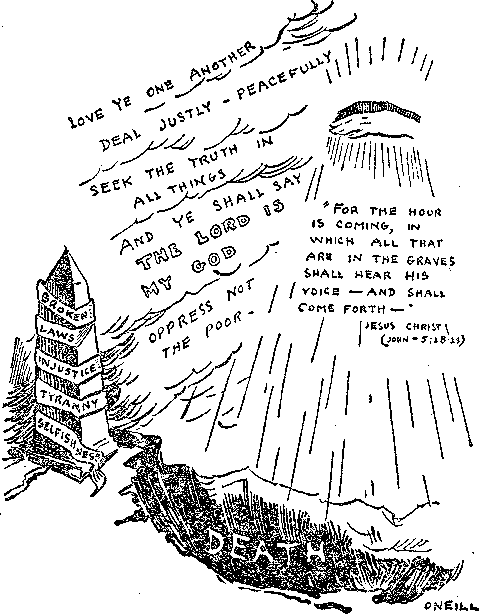 LOVE YE ONE ANOTHER
DEAL JUSTLY - PEACEFULLY
SEEK THE TRUTH IN
ALL THINGS
AND YE SHALL SAY
THE LORD IS
MY GOD
OPPRESS NOT
THE POOR -
"FOR THE HOUR
IS COMING, IN
WHICH ALL THAT
ARE IN THE GRAVES
SHALL HEAR HIS
VOICE - AND SHALL
COME FORTH -"
JESUS CHRIST
(JOHN - 5:28-29)
BROKEN
LAWS
INJUSTICE
TYRANNY
SELFISHNESS
DEATH
ONEILL